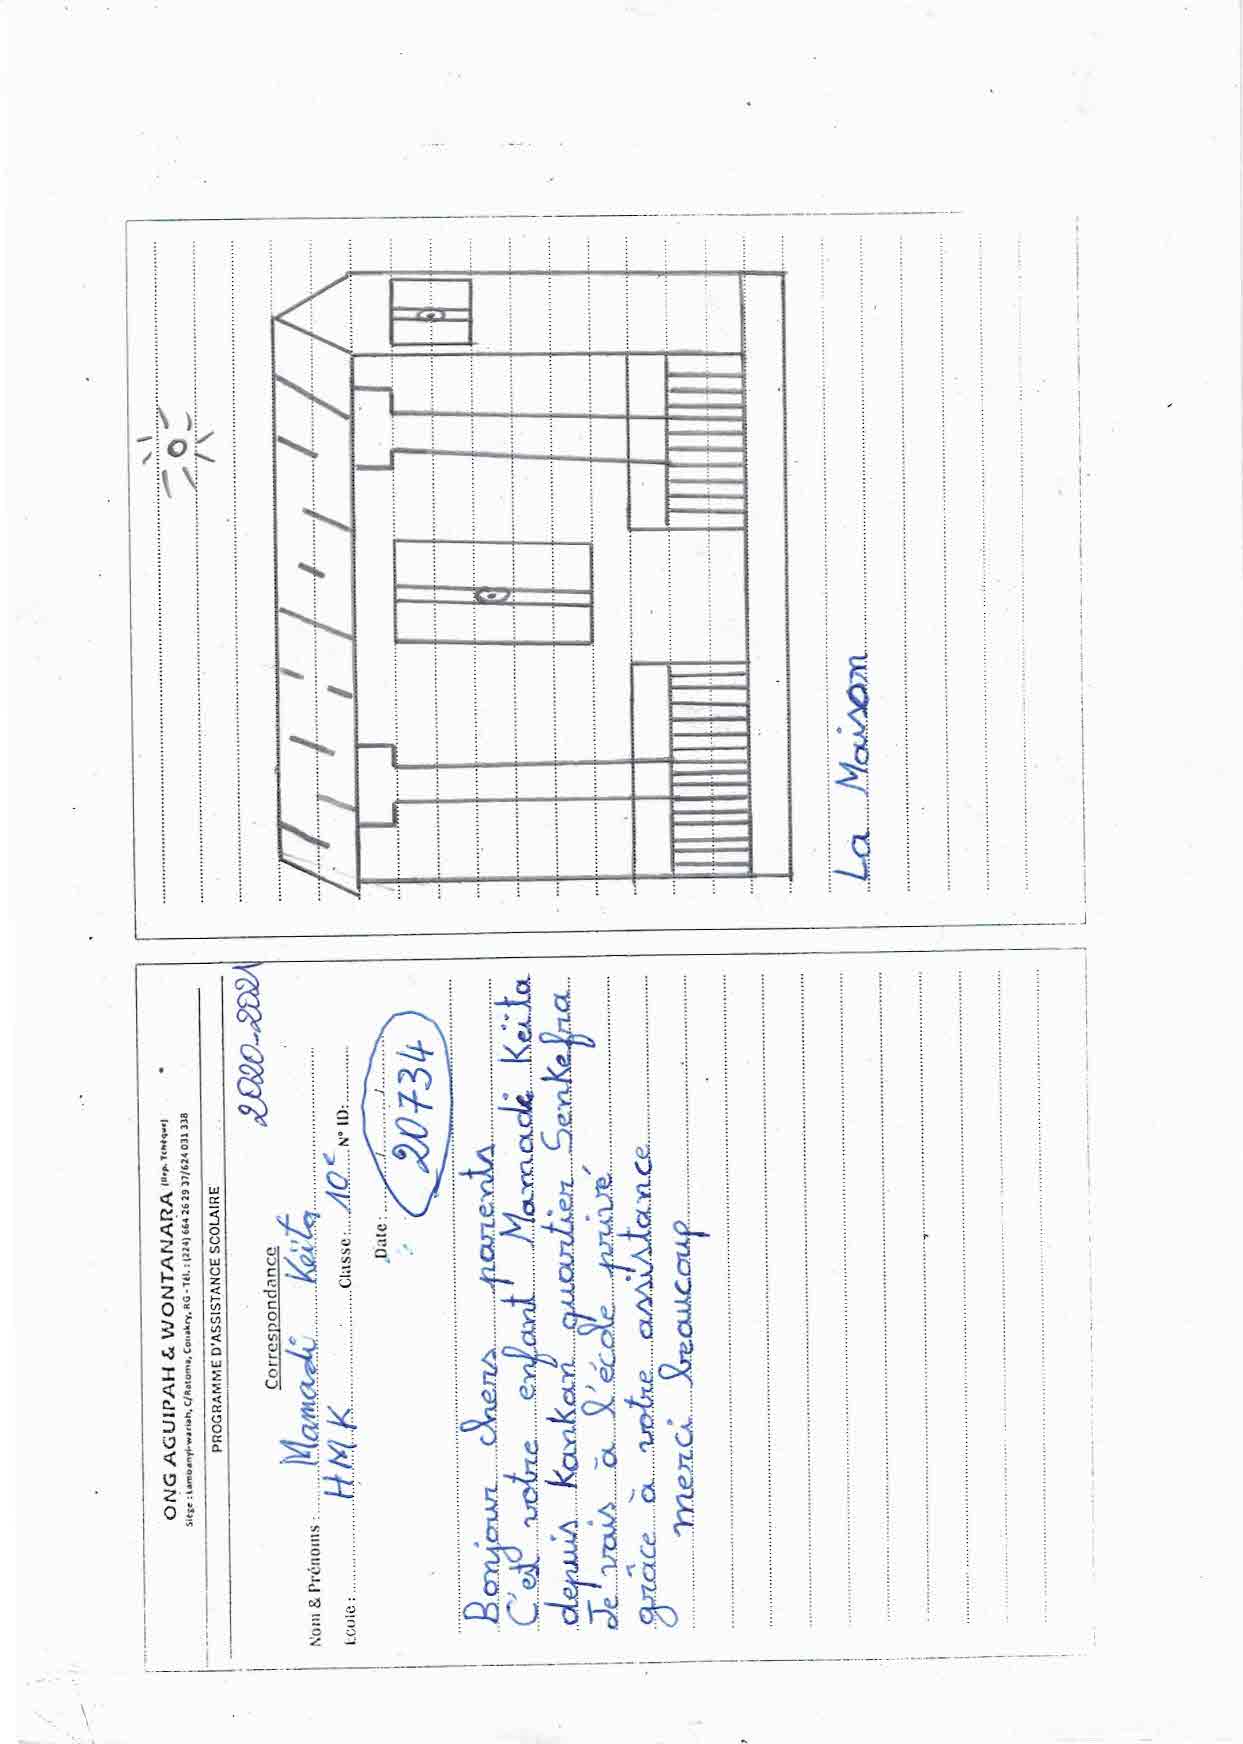 ONG AGUIPAH & WONTANARA (Rep. Tchèque)
Siège : Lambanyi-wariah, C/Ratoma, Conakry, RG - Tél. : (224) 664 26 29 37/624 031 338
PROGRAMME D'ASSISTANCE SCOLAIRE
2020-2021
Correspondance
Nom & Prénoms : Mamadi Keïta
Ecole : HMK Classe : 10e N° ID:
Date : / /
20734
Bonjour chers parents
C'est votre enfant Mamadi Keïta
depuis Kankan quartier Senkefra
Je vais à l'école privé
grâce à votre assistance
merci beaucoup
La Maison